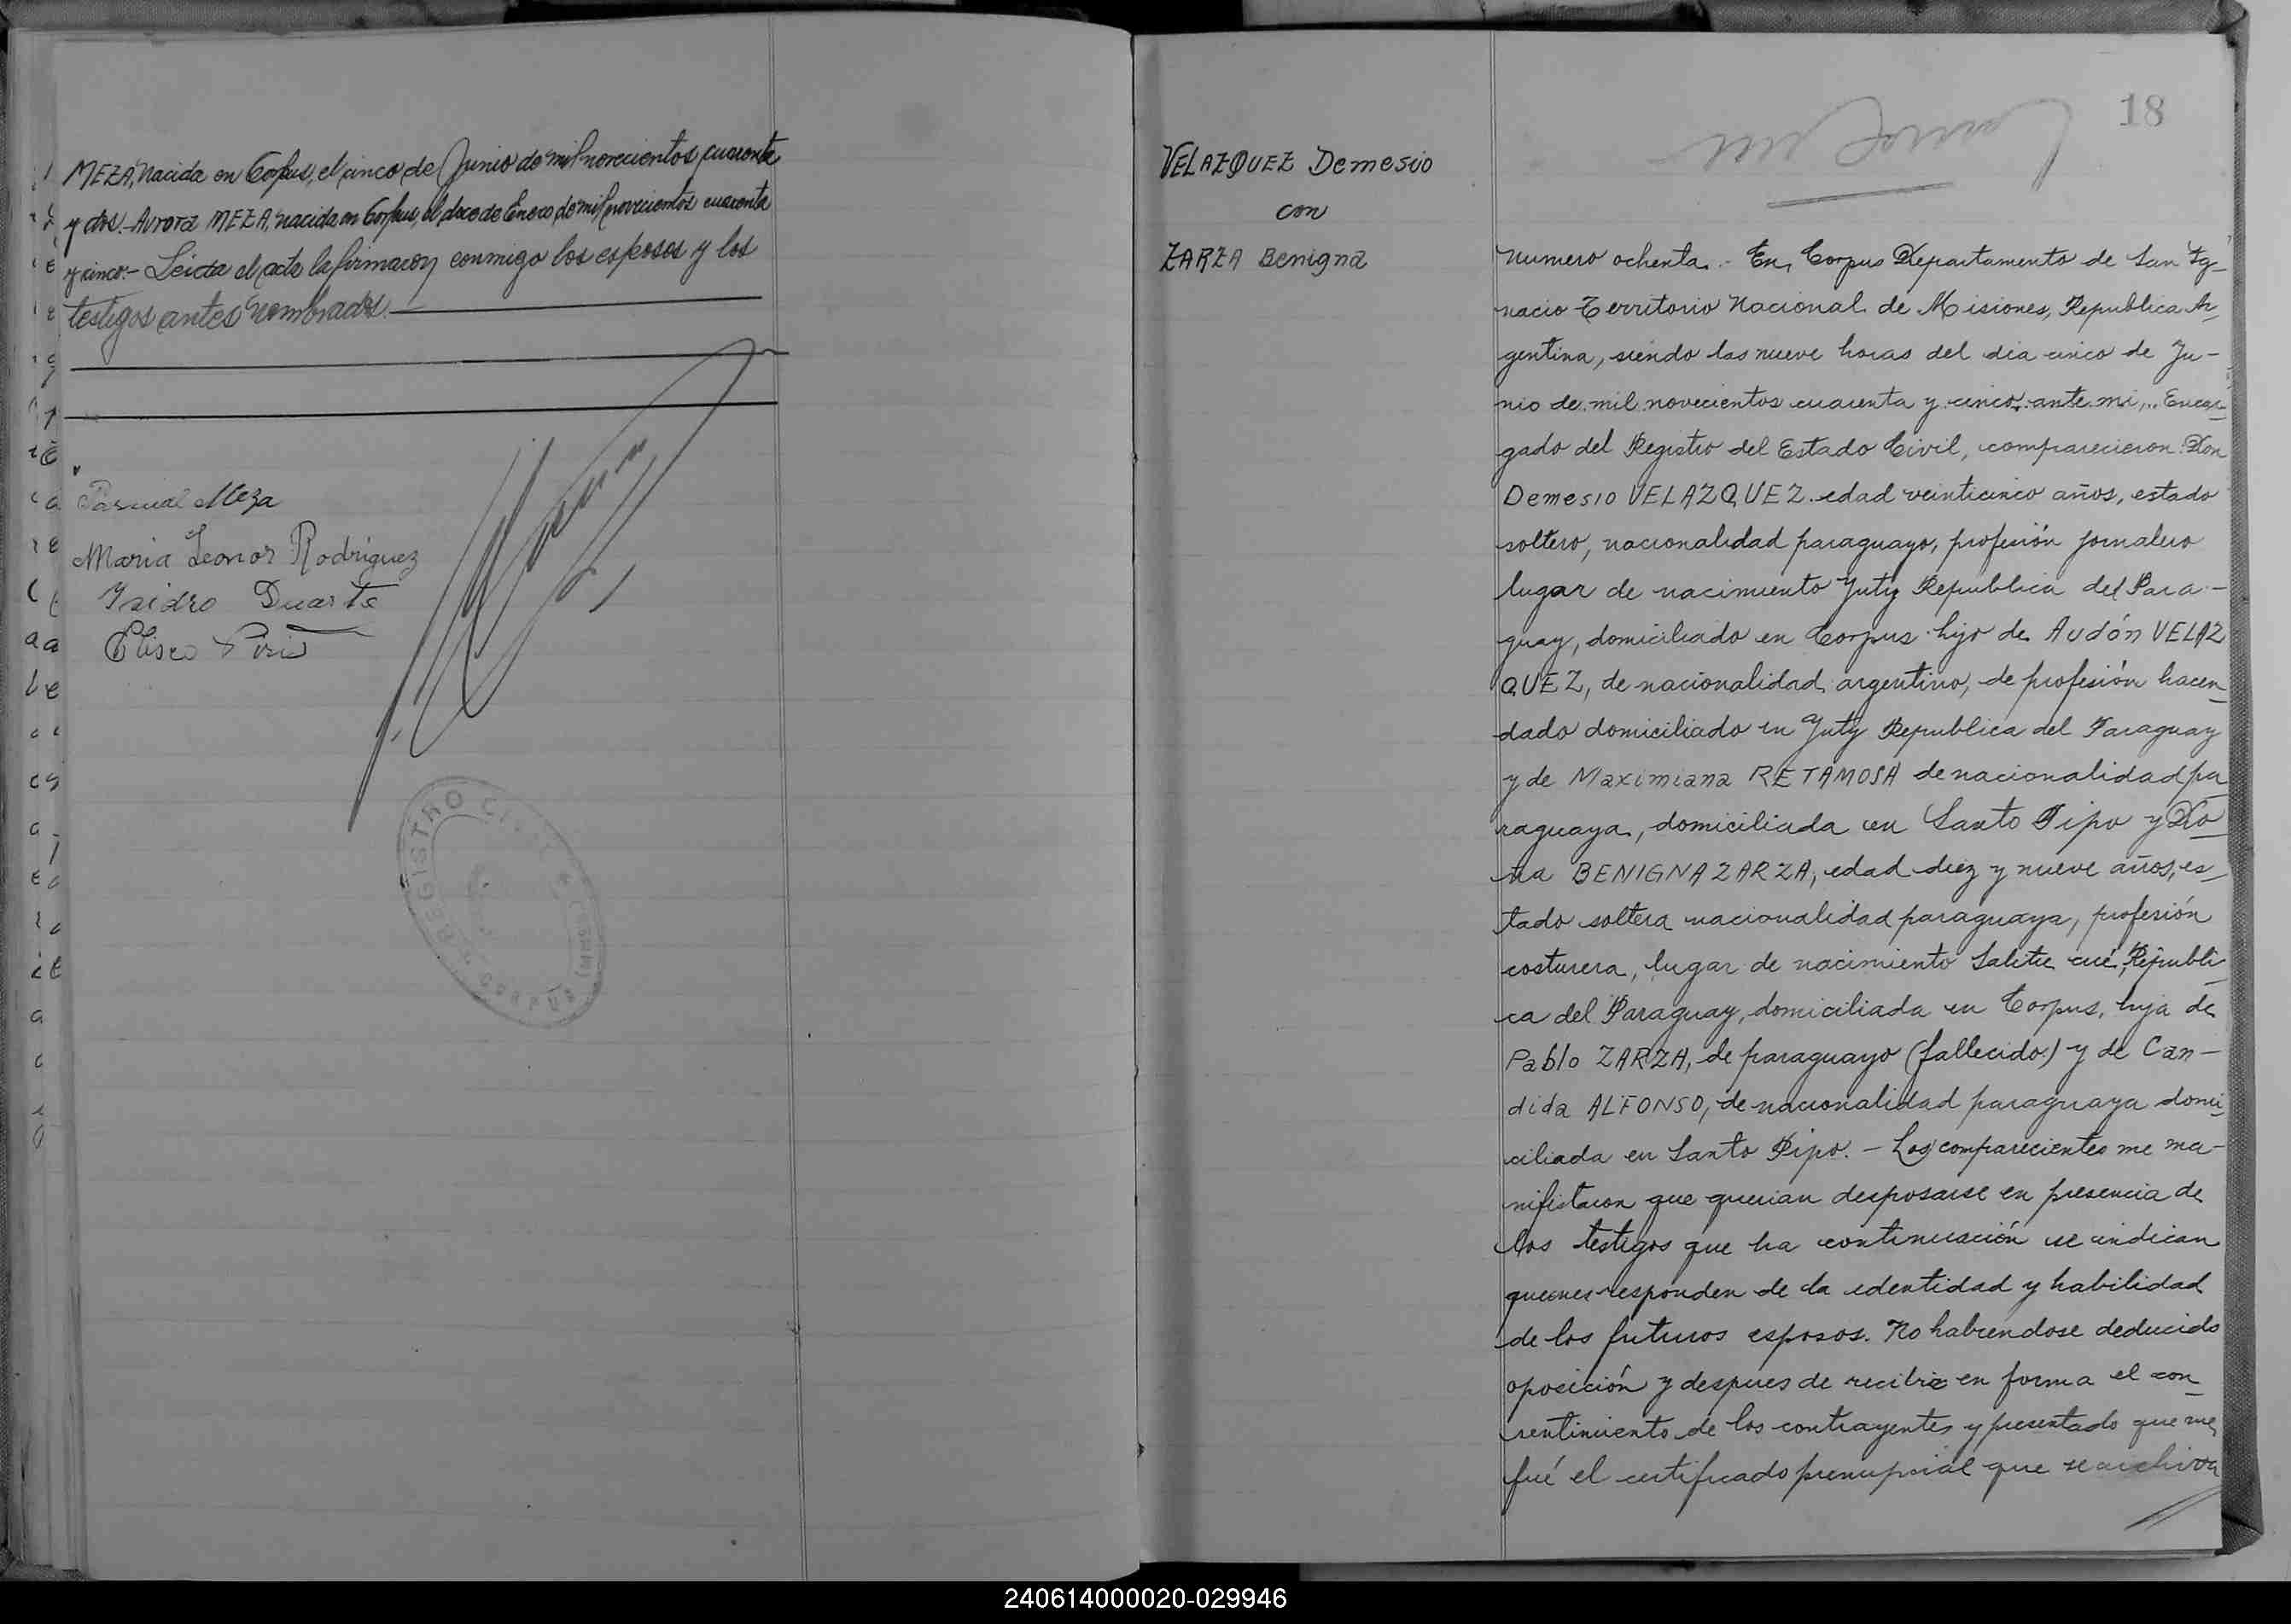 MEZA, nacida en Corpus, el cinco de Junio de mil novecientos cuarenta
y dos.- Aurora MEZA, nacida en Corpus, el doce de Enero de mil novecientos cuarenta
y cinco.- Leida el acta la firmaron conmigo los esposos y los
testigos antes nombrados.
Pascual Meza
Maria Leonor Rodríguez
Isidro Duarte
Eliseo
REGISTRO CIVIL
CORPUS (MNES)
18
VELAZQUEZ Demesio
con
ZARZA Benigna
Numero ochenta.- En Corpus Departamento de San Ig-
nacio Territorio Nacional de Misiones, Republica Ar-
gentina, siendo las nueve horas del dia cinco de Ju-
nio de mil novecientos cuarenta y cinco. ante mi,.. Encar-
gado del Registro del Estado Civil, comparecieron: Don
Demesio VELAZQUEZ. edad veinticinco años, estado
soltero, nacionalidad paraguayo, profesión jornalero
lugar de nacimiento Yuty Republica del Para-
guay, domiciliado en Corpus hijo de Audón VELAZ
QUEZ, de nacionalidad argentino, de profesión hacen-
dado domiciliado en Yuty Republica del Paraguay
y de Maximiana RETAMOSA de nacionalidad pa
raguaya, domiciliada en Santo Pipo y Do
ña BENIGNA ZARZA, edad diez y nueve años, es-
tado soltera nacionalidad paraguaya, profesión
costurera, lugar de nacimiento Salitre cué, Republi-
ca del Paraguay, domiciliada en Corpus, hija de
Pablo ZARZA, de paraguayo (fallecido) y de Can-
dida ALFONSO, de nacionalidad paraguaya domi-
ciliada en Santo Pipo.- Los comparecientes me ma-
nifestaron que querian desposarse en presencia de
los testigos que ha continuación se indican
quienes responden de la identidad y habilidad
de los futuros esposos. No habiendose deducido
oposición y despues de recibir en forma el con-
sentimiento de los contrayentes y presentado que me
fué el certificado prenupcial que se archiva
240614000020-029946